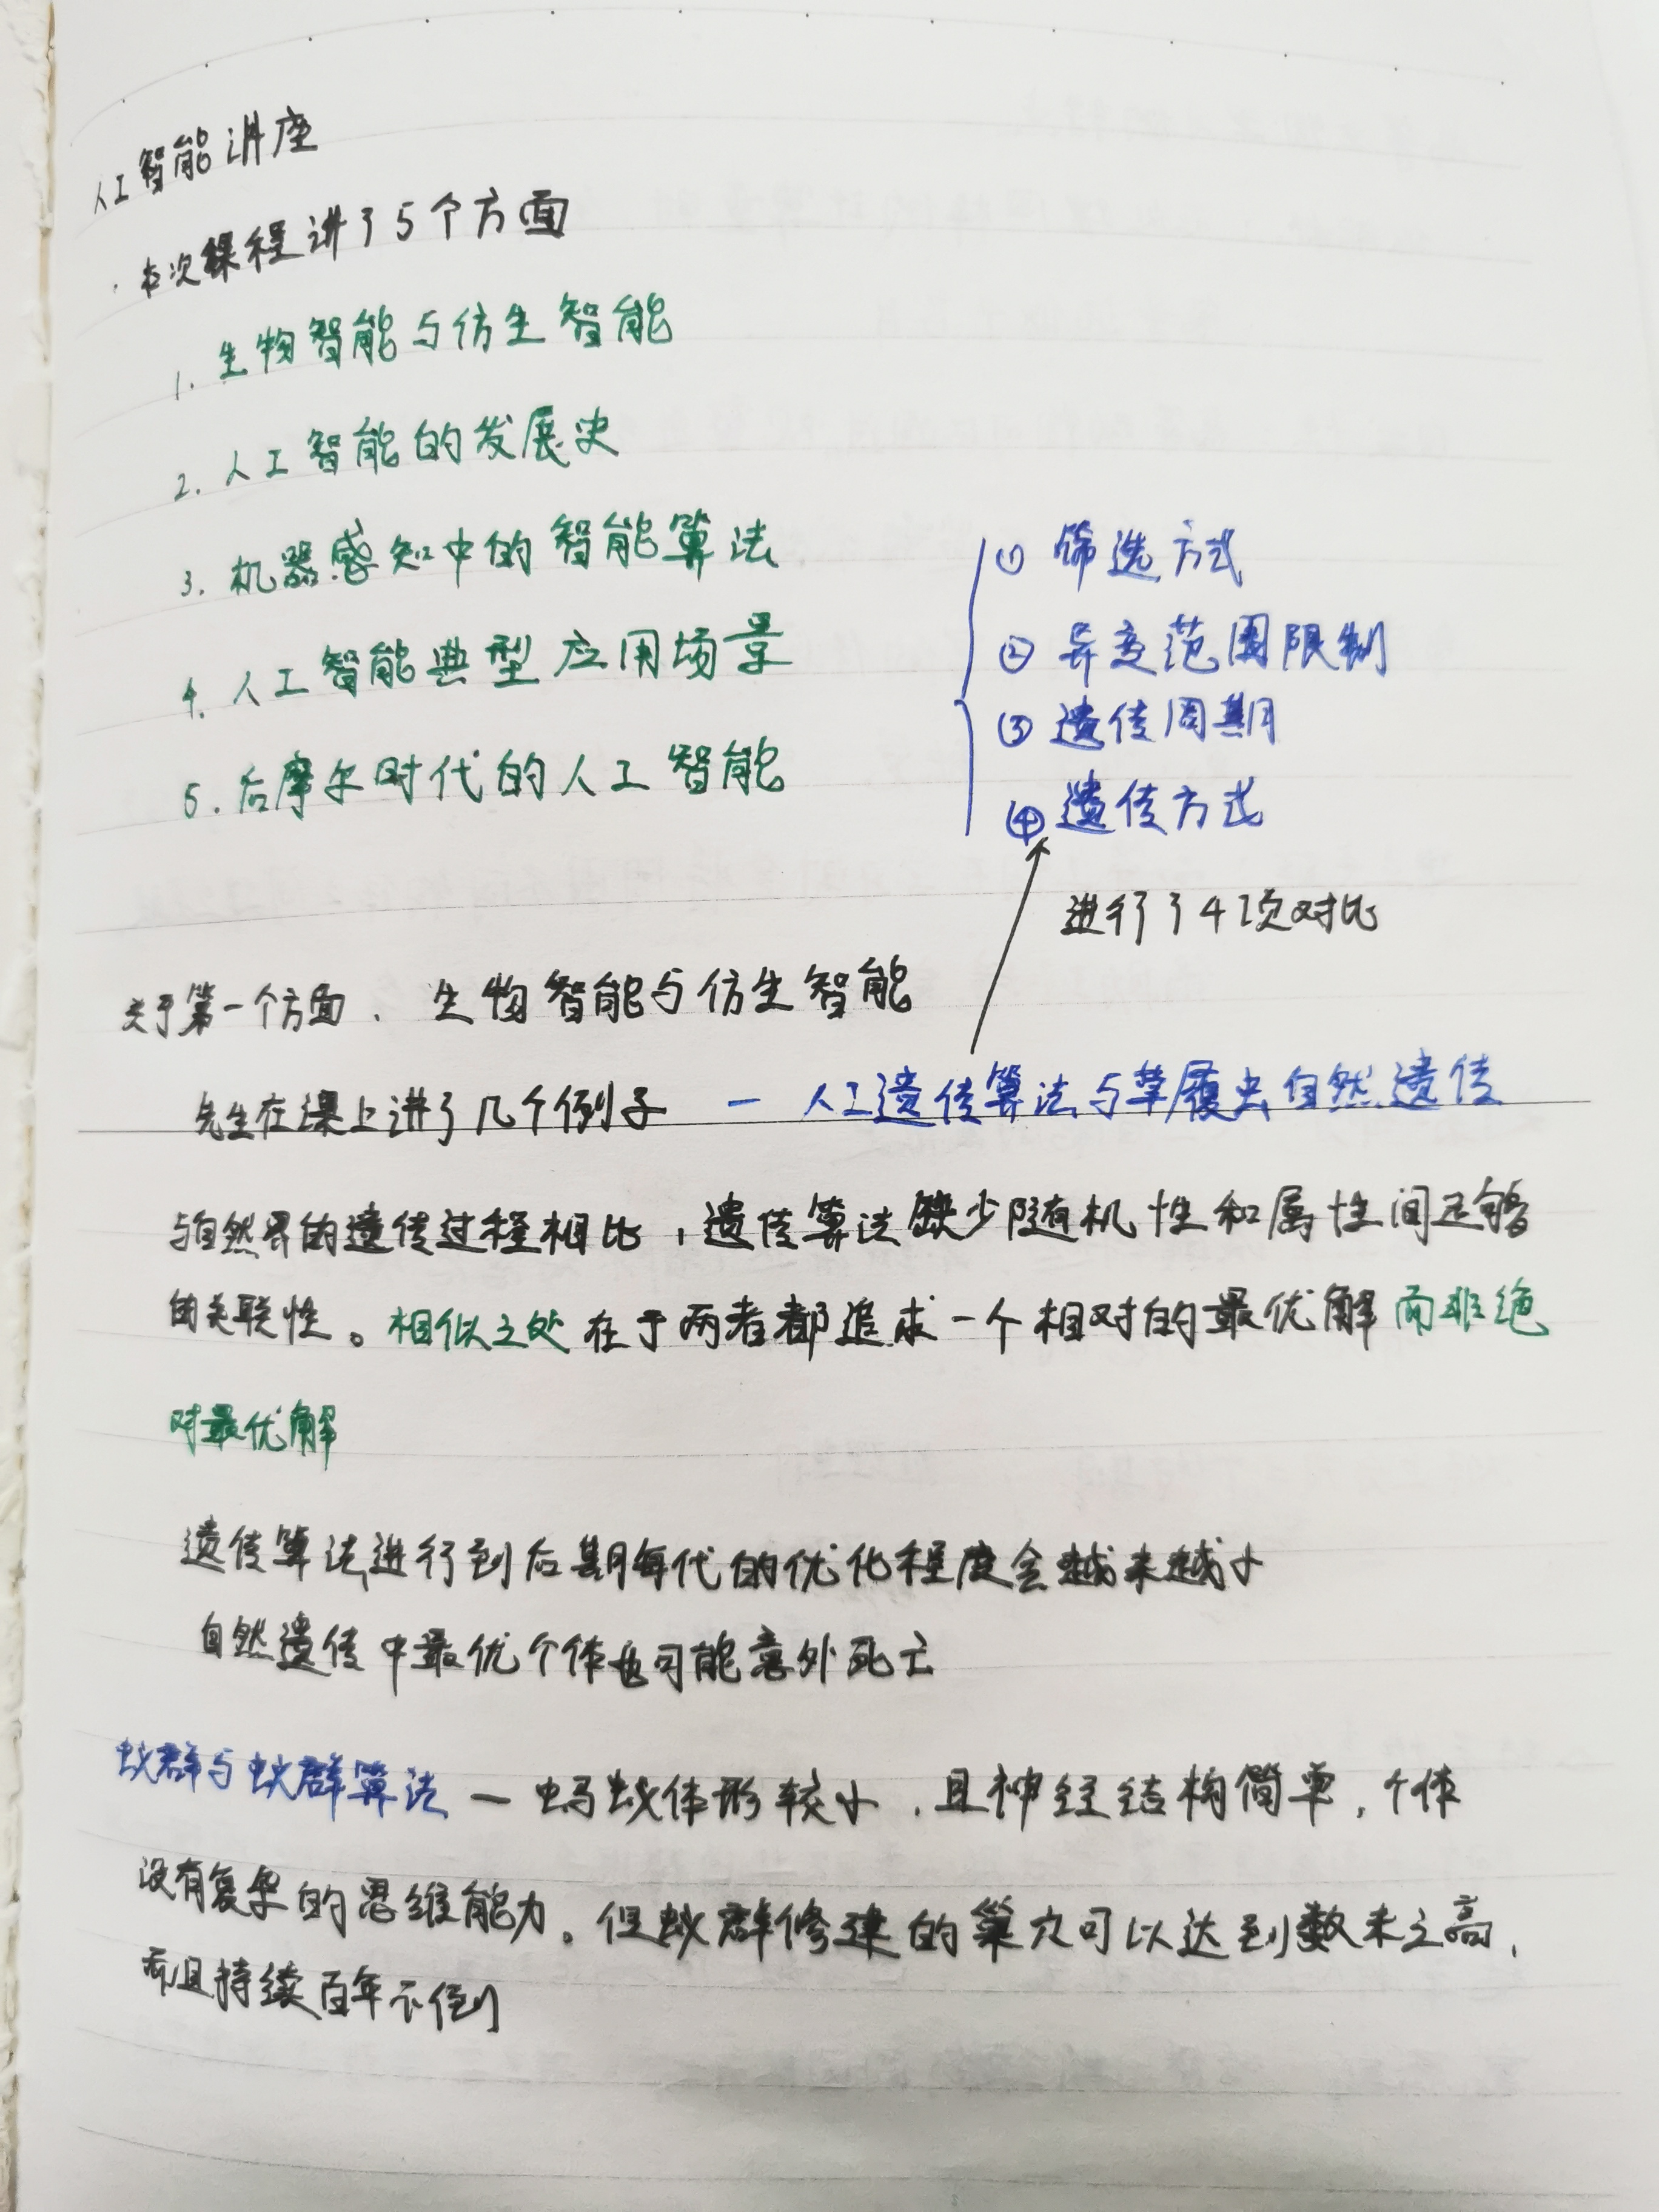 人工智能讲座
·本次课程讲了5个方面
1. 生物智能与仿生智能
2. 人工智能的发展史
3. 机器感知中的智能算法
4. 人工智能典型应用场景
5. 后摩尔时代的人工智能
① 筛选方式
② 异变范围限制
③ 遗传周期
④ 遗传方式
进行了4项对比
关于第一个方面、生物智能与仿生智能
先生在课上讲了几个例子 — 人工遗传算法与草履虫自然遗传
与自然界的遗传过程相比，遗传算法缺少随机性和属性间足够
的关联性。相似之处在于两者都追求一个相对的最优解而非绝
对最优解
遗传算法进行到后期每代的优化程度会越来越小
自然遗传中最优个体也可能意外死亡
蚁群与蚁群算法 — 蚂蚁体形较小，且神经结构简单，个体
没有复杂的思维能力。但蚁群修建的巢穴可以达到数米之高，
而且持续百年不倒